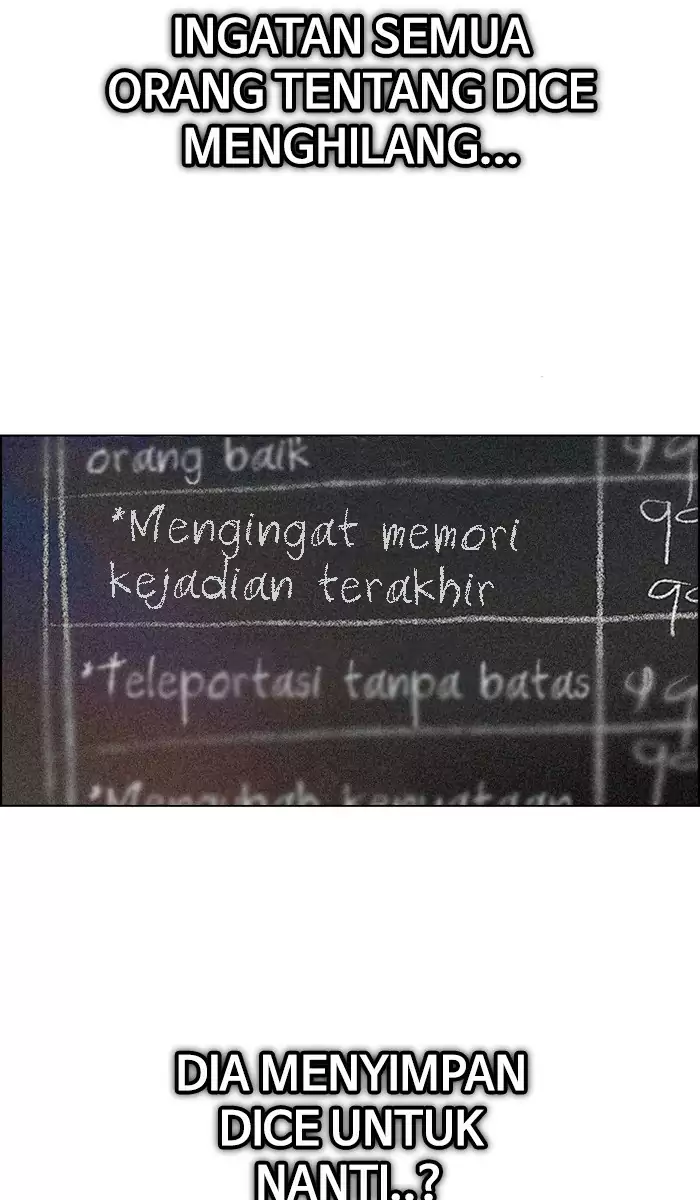 INGATAN SEMUA
ORANG TENTANG DICE
MENGHILANG...
orang baik
*Mengingat memori
kejadian terakhir
*Teleportasi tanpa batas
DIA MENYIMPAN
DICE UNTUK
NANTI..?